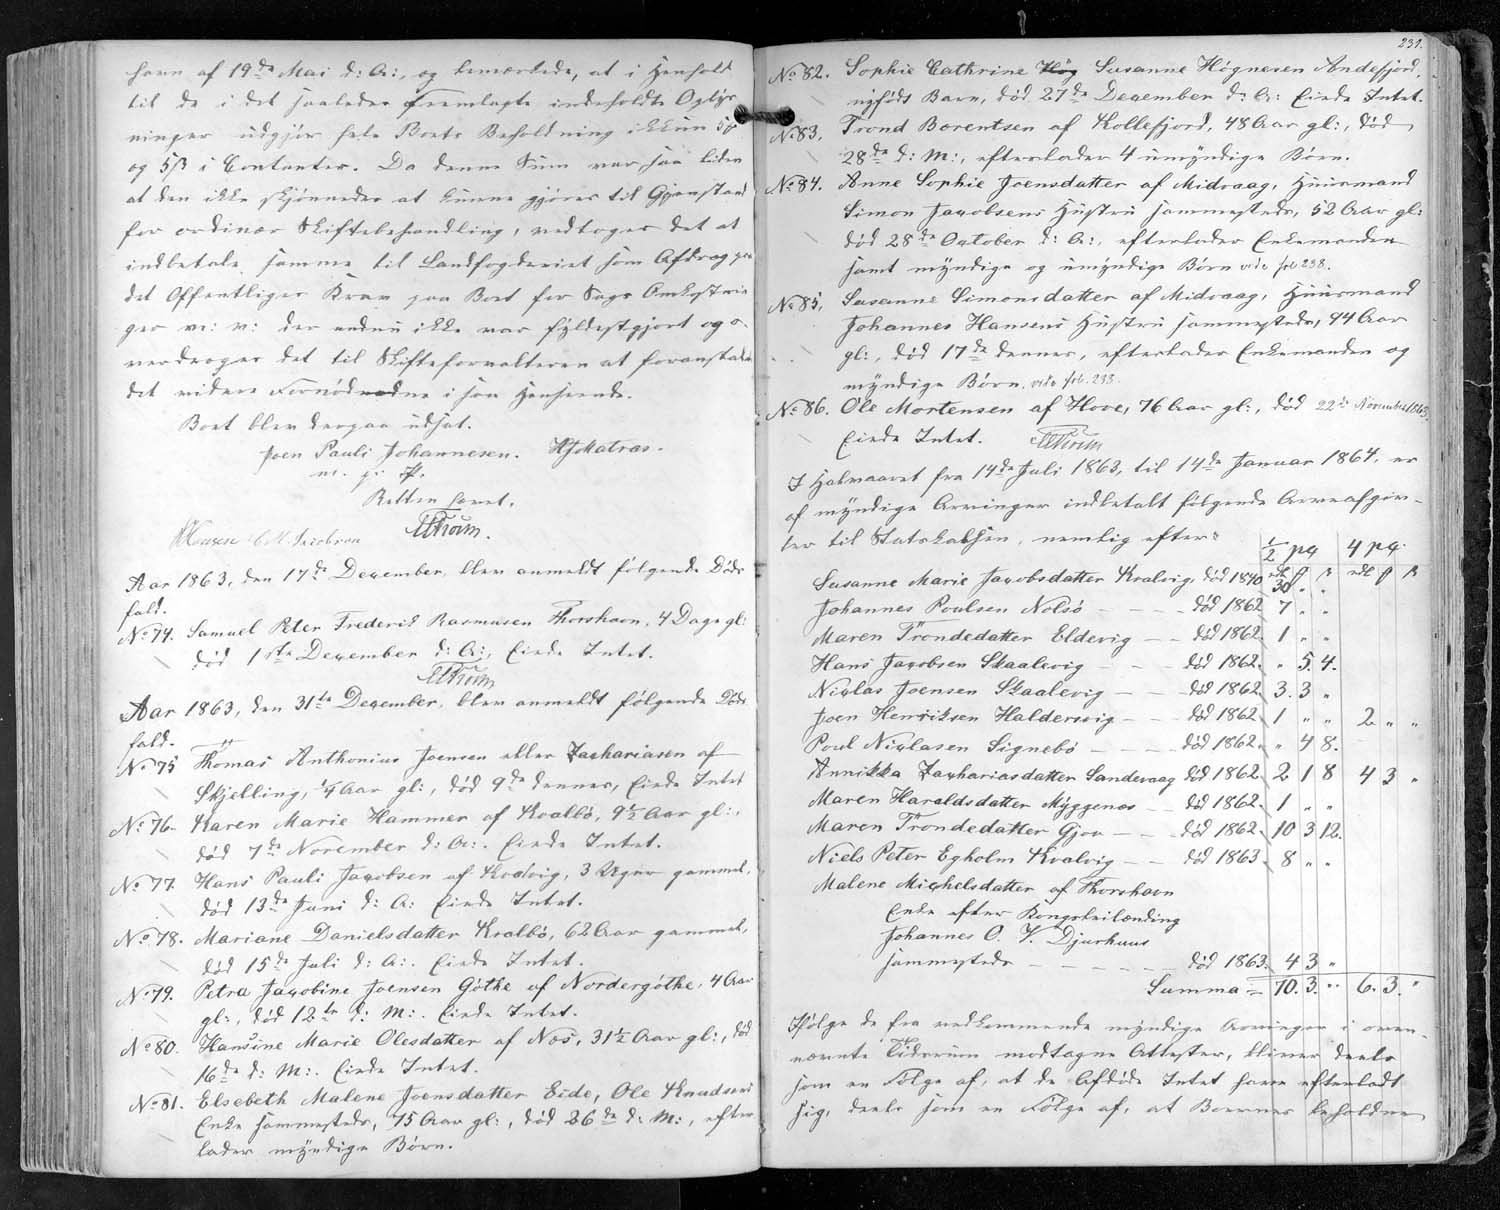 havn af 19de Mai d: A:, og bemærkede, at i Henhold
til de i det saaledes fremlagte indeholdte Oplys
ninger udgjør hele Boets Beholdning ikkun
og 5 β i Contanter. Da denne Sum var saa liden
at den ikke skjønnedes at kunne gjøres til Gjenstand
for ordinær Skiftebehandling, vedtoges det at
indbetale samme til Landfogderiet som Afdrag paa
det Offentliges Krav paa Boet for Sags Omkostnin
ger m: v: der endnu ikke var fyldestgjort og o-
verdroges det til Skifteforvalteren at foranstalte
det videre Fornødne i saa Henseende.
Boet blev derpaa udsat.
Joen Pauli Johannesen. HJMatras.
m. f. P.
Retten hævet.
HTrom.
Aar 1863, den 17de December, blev anmeldt følgende Døds
fald.
No 74. Samuel Peter Frederik Rasmusen Thorshavn, 4 Dage gl:
død 1ste December d: A:, Eiede Intet.
HTrom
Aar 1863, den 31te December, blev anmeldt følgende Døds
fald.
No 75 Thomas Anthonius Joensen eller Zachariasen af
Skjelling, 1/4 Aar gl:, død 9de dennes, Eiede Intet
No 76. Karen Marie Hammer af Kvalbø, 9 1/2 Aar gl:,
død 7de November d: A:. Eiede Intet.
No 77. Hans Pauli Jacobsen af Kvalvig, 3 Uger gammel,
død 13de Juni d: A: Eiede Intet.
No 78. Mariane Danielsdatter Kvalbø, 62 Aar gammel,
død 15de Juli d: A:. Eiede Intet.
No 79. Petra Jacobine Joensen Gøthe af Nordergøthe, 4 Aar
gl:, død 12te d: M:. Eiede Intet.
No 80. Hansine Marie Olesdatter af Næs, 31 1/2 Aar gl:, død
16de d: M:. Eiede Intet.
No 81. Elsebeth Malene Joensdatter Eide, Ole Knudsens
Enke sammesteds, 75 Aar gl:, død 26de d: M:, efter
lader myndige Børn.
231.
No 82. Sophie Cathrine Høg Susanne Høgnesen Andefjord,
nyfødt Barn, død 27de December d: A: Eiede Intet.
No 83. Trond Barentsen af Kollefjord, 48 Aar gl:, død
28de d: M:, efterlader 4 umyndige Børn.
No 84. Anne Sophie Joensdatter af Midvaag, Huusmand
Simon Jacobsens Hustru sammesteds, 52 Aar gl:
død 28de October d: A:, efterlader Enkemanden
samt myndige og umyndige Børn vide fol 238.
No 85. Susanne Simonsdatter af Midvaag, Huusmand
Johannes Hansens Hustru sammesteds, 44 Aar
gl:, død 17de dennes, efterlader Enkemanden og
myndige Børn. vide fol. 233.
No 86. Ole Mortensen af Hove, 76 Aar gl:, død 22de November 1863.
Eiede Intet. HTrom
I Halvaaret fra 14de Juli 1863, til 14de Januar 1864, er
af myndige Arvinger indbetalt følgende Arveafgif-
ter til Statskassen, nemlig efter: 1/2 pC 4 pC.
Susanne Marie Jacobsdatter Kvalvig, død 1840 rdl 30 ƒ „ β „ rdl ƒ β
Johannes Poulsen Nolsø - - - død 1862 7 „ „
Maren Trondedatter Eldevig - - død 1862. 1 „ „
Hans Jacobsen Skaalevig - - død 1862. „ 5. 4.
Niclas Joensen Skaalevig - - død 1862. 3. 3 „
Joen Henriksen Haldersvig - - død 1862 1 „ „ 2 „ „
Poul Niclasen Signebø - - - død 1862. „ 4 8.
Annikka Zachariasdatter Sandevaag død 1862. 2 1 8 4 3 „
Maren Haraldsdatter Myggenæs - død 1862. 1 „ „
Maren Trondedatter Gjov - - død 1862. 10 3 12.
Niels Peter Egholm Kvalvig - - død 1863. 8 „ „
Malene Michelsdatter af Thorshavn
Enke efter Kongsbeilænding
Johannes O. V. Djurhuus
sammesteds - - - - død 1863. 4 3 „
Summa = 70. 3. „ 6. 3. „
Ifølge de fra vedkommende myndige Arvinger i oven-
nævnte Tidsrum modtagne Attester, bliver deels
som en Følge af, at de Afdøde Intet have efterladt
sig, deels som en Følge af, at Boernes beholdne